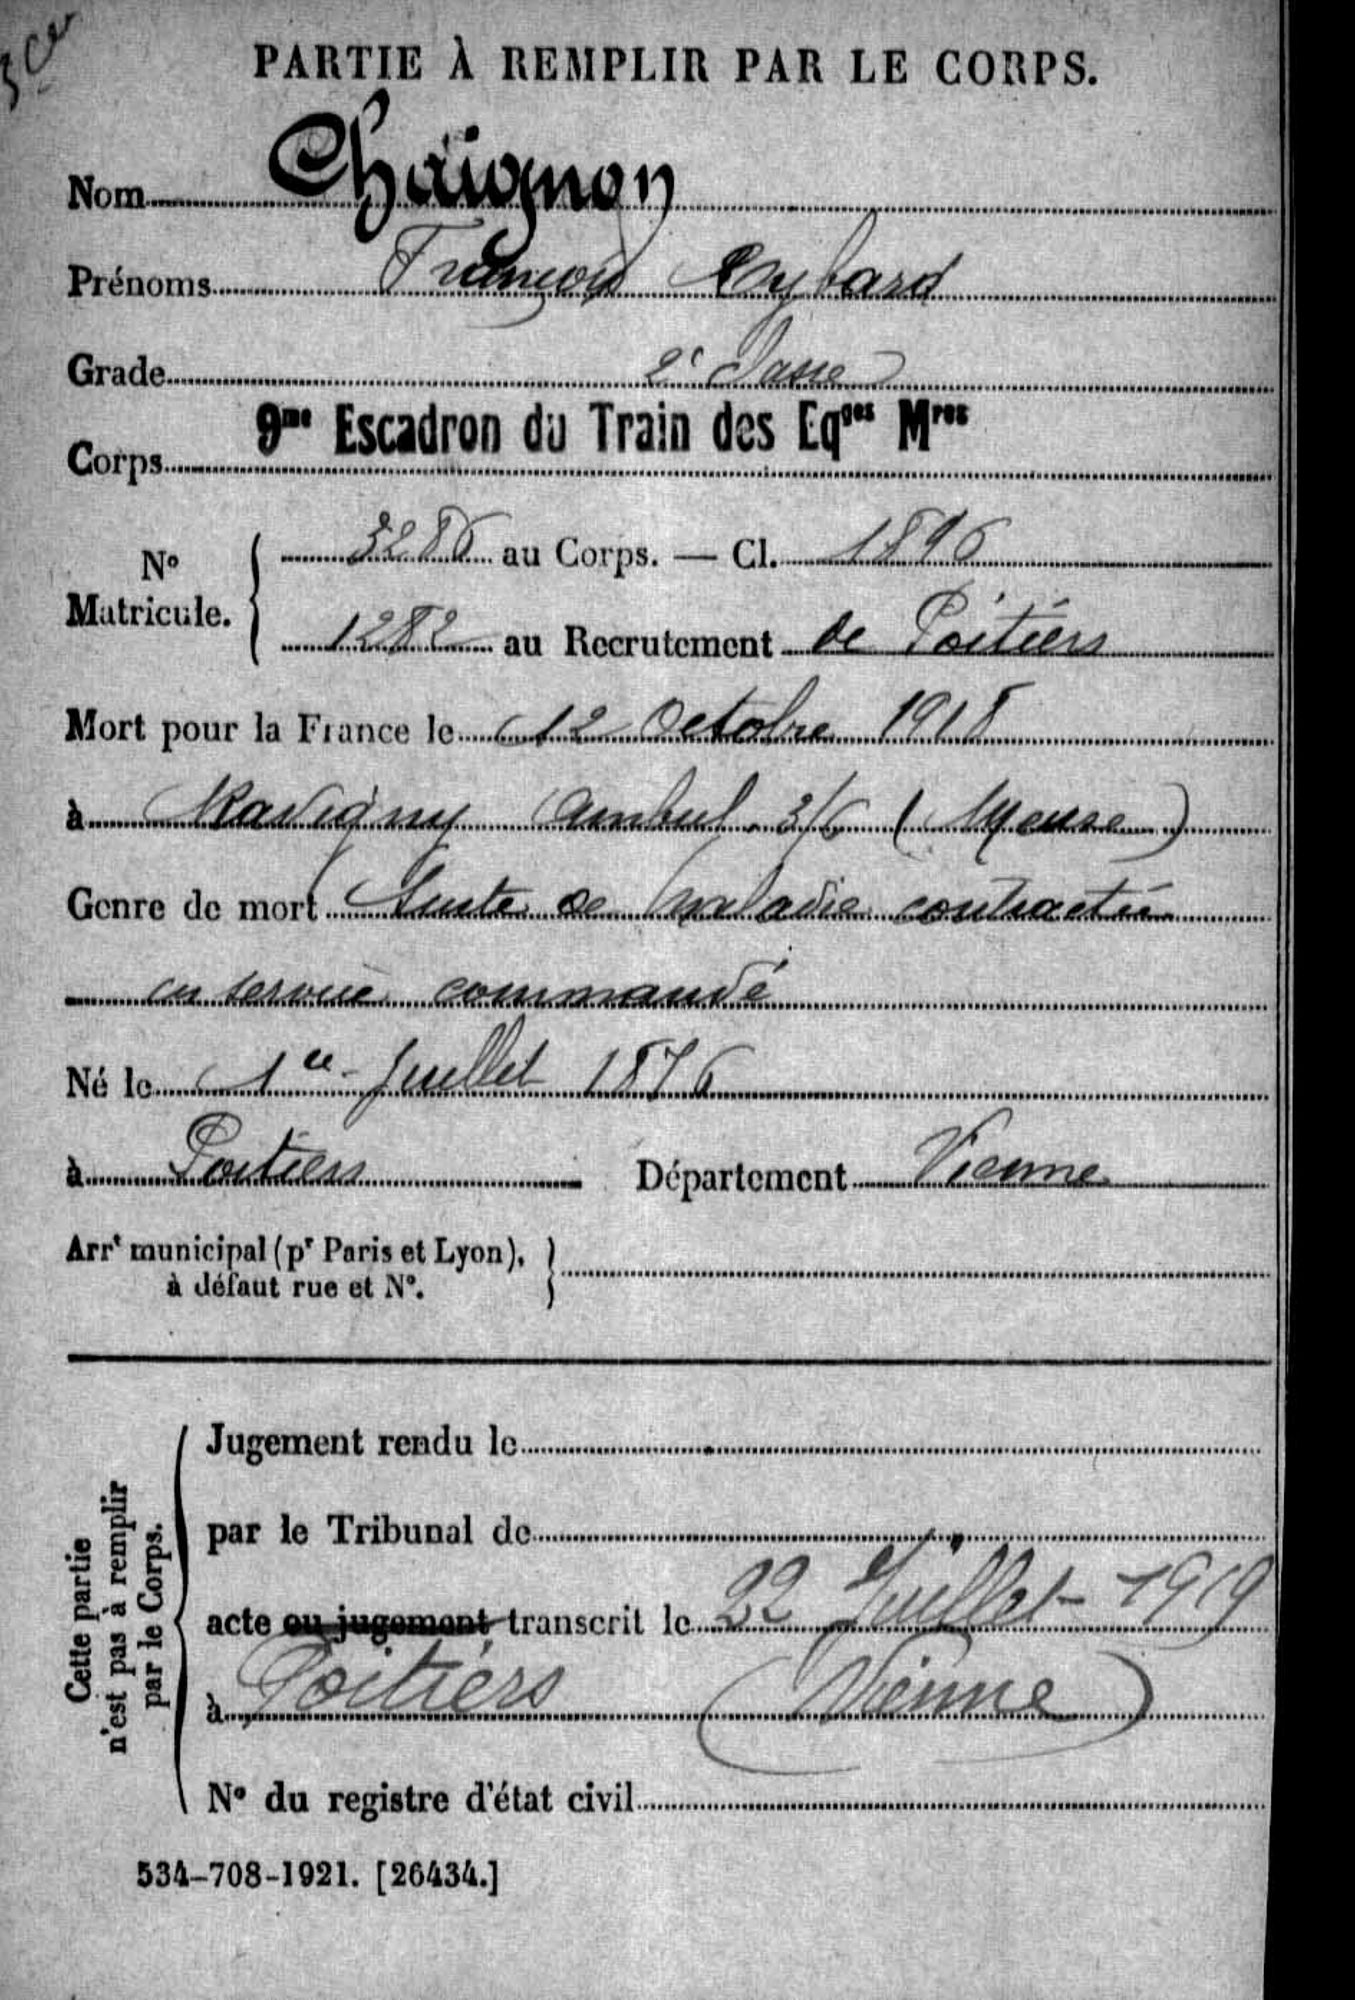 PARTIE À REMPLIR PAR LE CORPS.
Nom Chaignon
Prénoms François Cybard
Grade 2e Classe
Corps 9me Escadron du Train des Eqges Mres
No Matricule. 3286 au Corps. — Cl. 1896
1282 au Recrutement de Poitiers
Mort pour la France le 12 Octobre 1918
à Ravigny Ambul. 3/6 (Meuse)
Genre de mort Suite de maladie contractée
en service commandé
Né le 1er Juillet 1876
à Poitiers Département Vienne
Arrt municipal (pr Paris et Lyon),
à défaut rue et No.
Cette partie
n'est pas à remplir
par le Corps.
Jugement rendu le
par le Tribunal de
acte ou jugement transcrit le 22 Juillet 1919
à Poitiers (Vienne)
No du registre d'état civil
534-708-1921. [26434.]